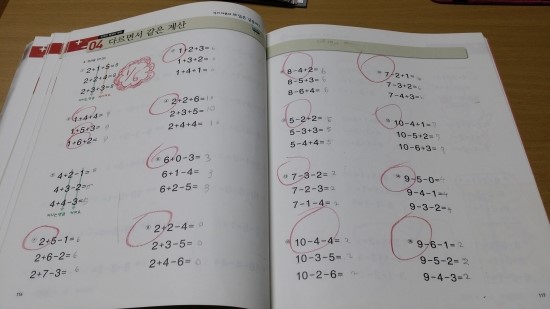 04 다르면서 같은 계산
2+1+5=8
2+2+4=8
2+3+3=8
1+4+4=9
1+5+3=9
1+6+2=9
4+2-1=5
4+3-2=5
4+4-3=5
2+5-1=6
2+6-2=6
2+7-3=6
1+2+3=6
1+3+2=6
1+4+1=6
2+2+6=10
2+3+5=10
2+4+4=10
6+0-3=3
6+1-4=3
6+2-5=3
2+2-4=0
2+3-5=0
2+4-6=0
8-4+2=6
8-5+3=6
8-6+4=6
5-2+2=5
5-3+3=5
5-4+4=5
7-3-2=2
7-2-3=2
7-1-4=2
10-4-4=2
10-3-5=2
10-2-6=2
7-2+1=6
7-3+2=6
7-4+3=6
10-4+1=
10-5+2=
10-6+3=
9-5-0=4
9-4-1=4
9-3-2=4
9-6-1=2
9-5-2=2
9-4-3=2